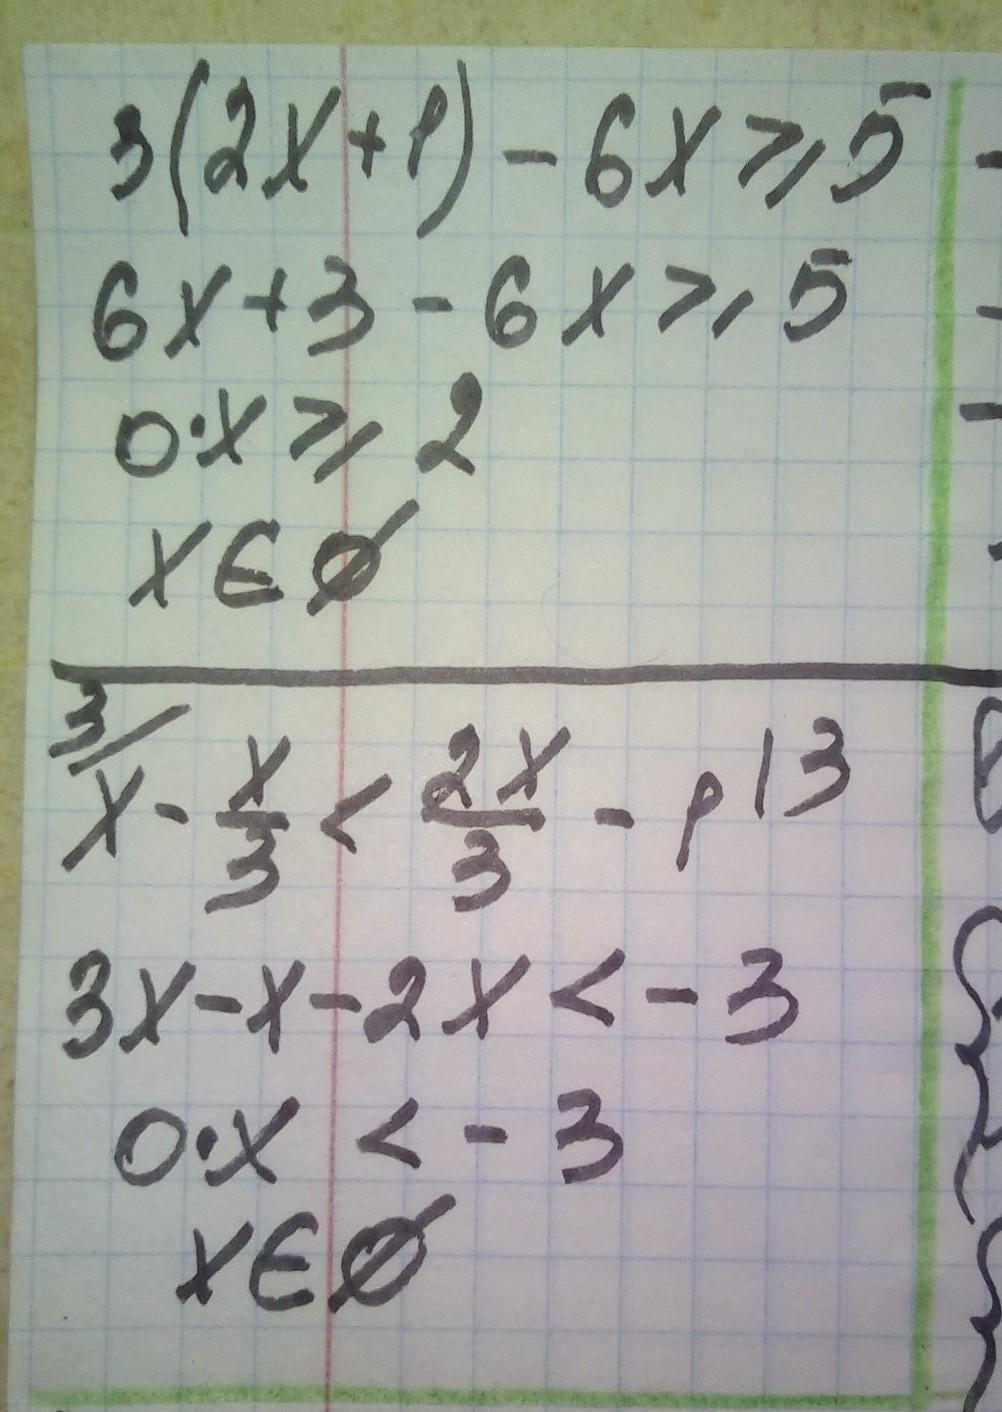 3(2x+1) - 6x ⩾ 5
6x+3 - 6x ⩾ 5
0·x ⩾ 2
x ∈ ∅
3/ x - x/3 < 2x/3 - 1 | 3
3x-x-2x < -3
0·x < -3
x ∈ ∅